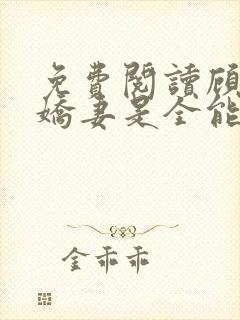 免費閱讀顧
嬌妻是全能
金乖乖